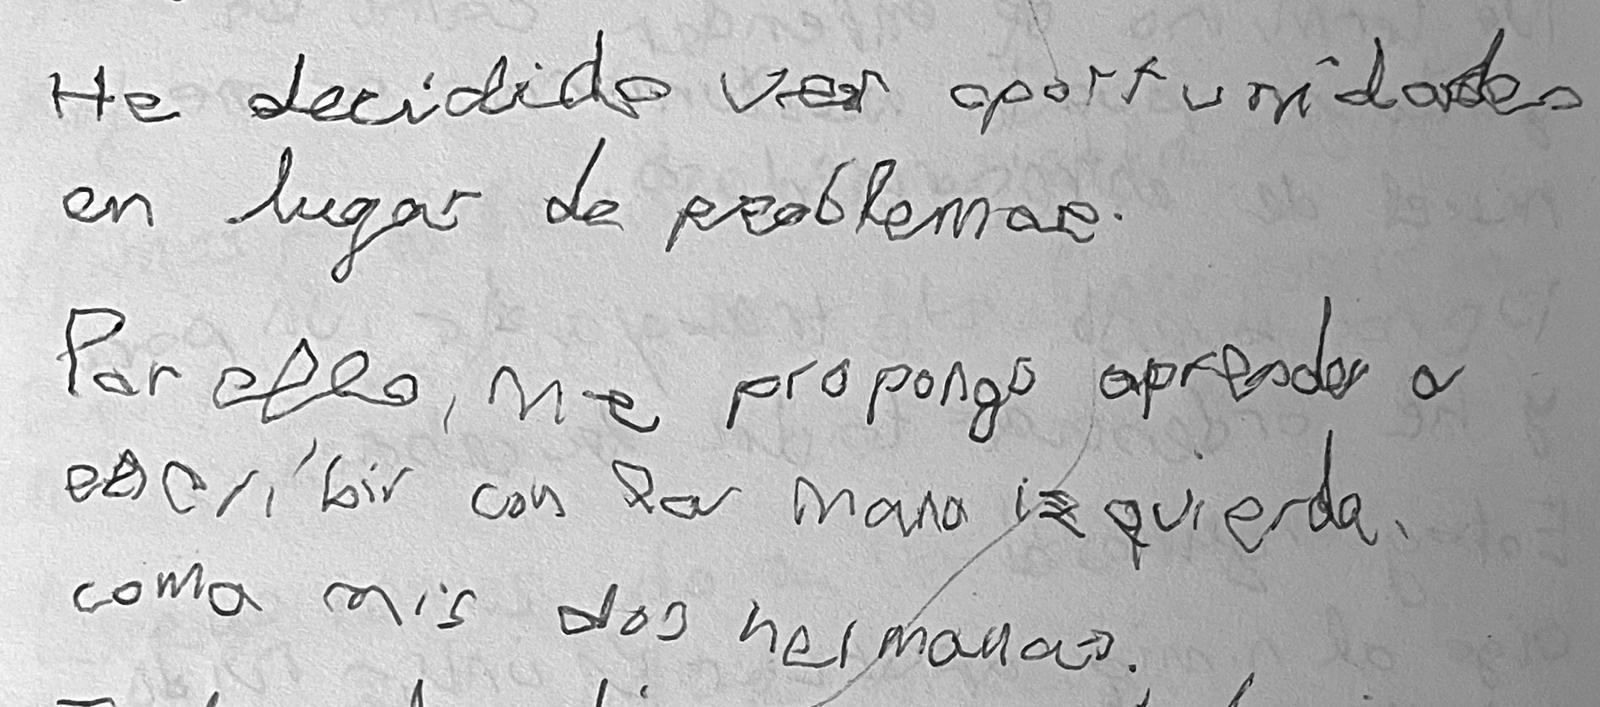 He decidido ver oportunidades
en lugar de problemas.
Por ello, me propongo aprender a
escribir con la mano izquierda,
como mis dos hermanas.